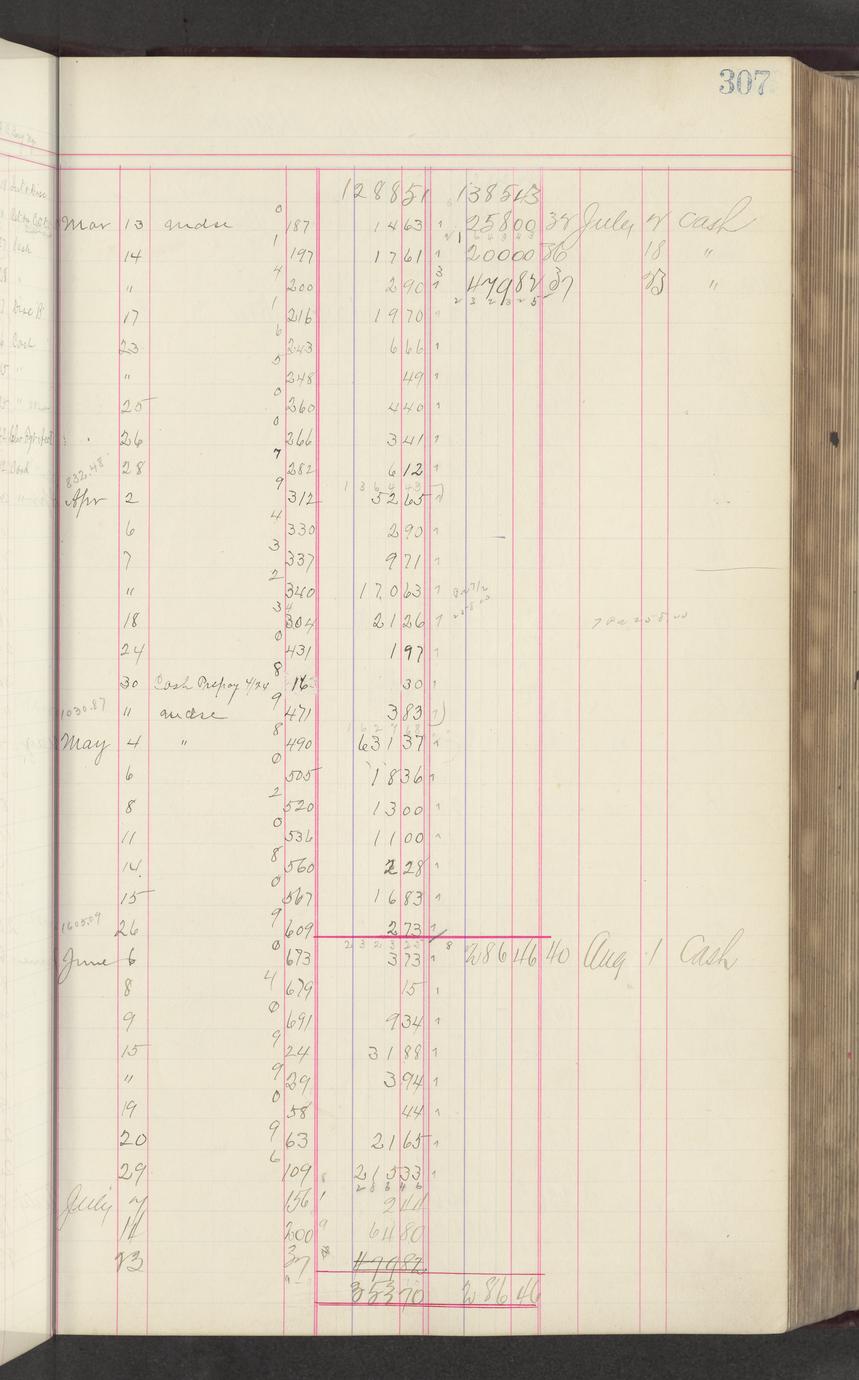 307
128851 138543
Mar 13 mdse 187 1463 25800 38 July 2 Cash
14 197 1761 20000 36 18 "
" 200 290 47982 37 23 "
17 216 1970
23 243 666
" 248 49
25 260 440
26 266 341
832.48 28 282 612
136443
Apr 2 312 5265
6 330 290
7 337 971
" 340 17063
18 304 2126
24 431 197
30 Cash Prepay 4/24 30
1030.87 " mdse 471 383
May 4 " 490 63137
6 505 1836
8 520 1300
11 536 1100
14 560 228
15 567 1683
1605.09 26 609 273
232325
June 6 673 373 28646 40 Aug 1 Cash
8 679 15
9 691 934
15 24 3188
" 29 394
19 58 44
20 63 2165
29 109 21533
July 2 156 244
11 200 6480
23 37 47982
35370 28646